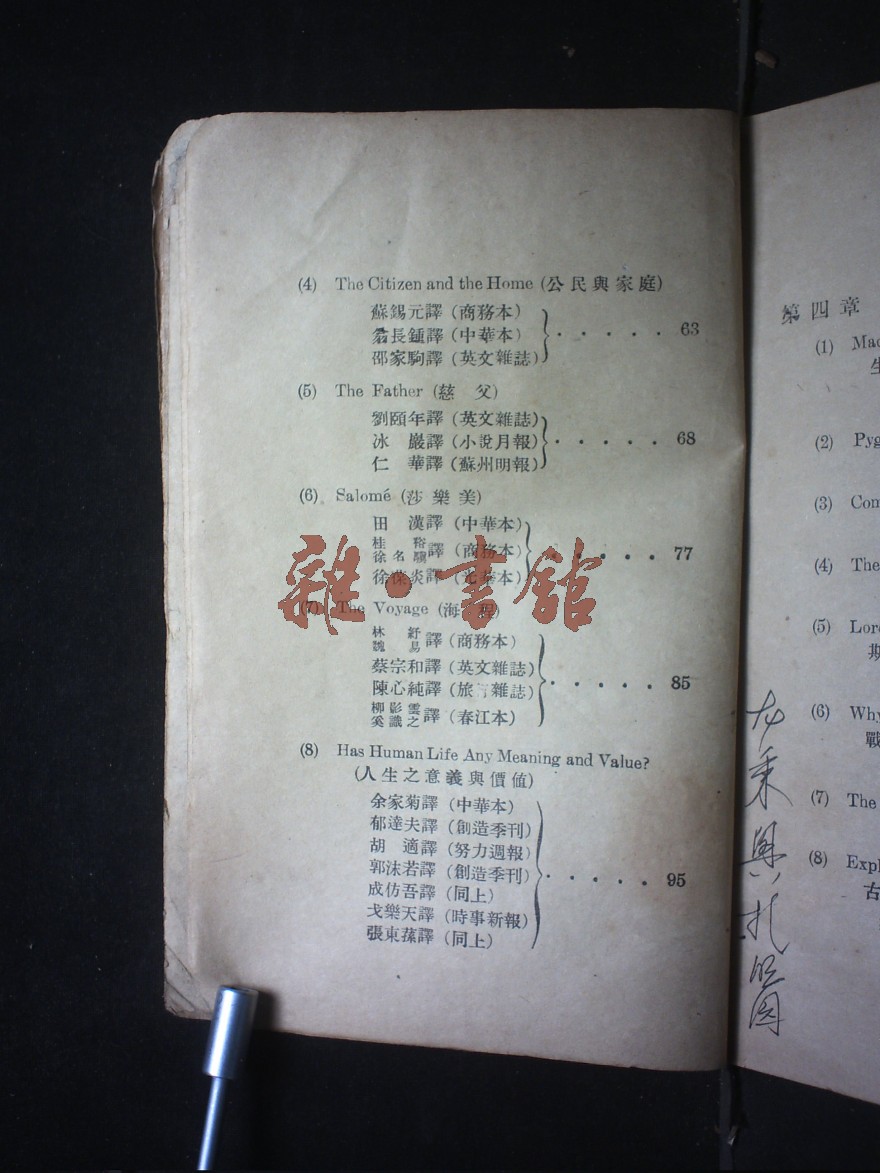 (4) The Citizen and the Home (公民與家庭)
蘇錫元譯 (商務本)
翁長鍾譯 (中華本)
邵家駒譯 (英文雜誌)
63
(5) The Father (慈 父)
劉頤年譯 (英文雜誌)
冰 巖譯 (小說月報)
仁 華譯 (蘇州明報)
68
(6) Salomé (莎樂美)
田 漢譯 (中華本)
桂 裕
徐名驥譯 (商務本)
徐葆炎譯 (光華本)
77
(7) The Voyage (海程)
林 紓
魏 易譯 (商務本)
蔡宗和譯 (英文雜誌)
陳心純譯 (旅行雜誌)
柳影雲
奚識之譯 (春江本)
85
(8) Has Human Life Any Meaning and Value?
(人生之意義與價值)
余家菊譯 (中華本)
郁達夫譯 (創造季刊)
胡 適譯 (努力週報)
郭沫若譯 (創造季刊)
成仿吾譯 (同上)
戈樂天譯 (時事新報)
張東蓀譯 (同上)
95
雜·書館
第四章
(1) Mac
生
(2) Pyg
(3) Com
(4) The
(5) Lor
期
(6) Why
戰
(7) The
(8) Expl
古